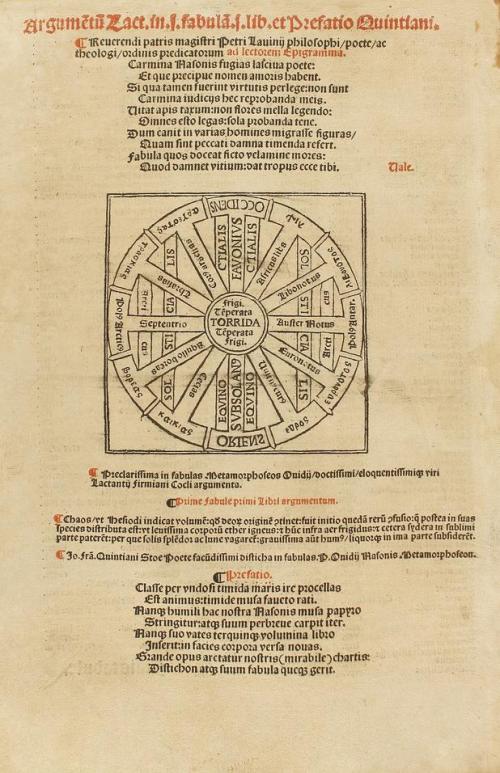 Argumētū Lact. in .j. fabulā .j. lib. et Prefatio Quintiani.
¶ Reuerendi patris magistri Petri Lauinij philosophi/poete/ac
theologi/ordinis predicatorum ad lectorem Epigramma.
Carmina Nasonis fugias lasciua poete:
Et que precipue nomen amoris habent.
Si qua tamen fuerint virtutis perlege: non sunt
Carmina iudicijs hec reprobanda meis.
Vitat apis taxum: non flores mella legendo:
Omnes esto legas: sola probanda tene.
Dum canit in varias homines migrasse figuras/
Quam sint peccati damna timenda refert.
Fabula quos doceat ficto velamine mores:
Quod damnet vitium: dat tropus ecce tibi.
Vale.
OCCIDENS
CTIALIS
FAVONIVS
CTIALIS
Affricus lib
SOL
STI
Libonotus
Auster Notus
Euronotus
LIS
ORIENS
EQVINO
SVBSOLANꝰ
EQVINO
Cecias
SOL
STI
Aquilo boreas
Septentrio
CIA
LIS
Frigi.
Tēperata
TORRIDA
Tēperata
frigi.
¶ Preclarissima in fabulas Metamorphoseos Ouidij/doctissimi/eloquentissimiqꝫ viri
Lactantij Firmiani Coeli argumenta.
¶ Prime fabule primi Libri argumentum.
¶ Chaos/vt Hesiodi indicat volumē: qd deoꝝ originē ↄtinet: fuit initio quedā rerū ↄfusio: q̄ postea in suas
species distributa est: vt leuissima corporū ether igneus: t hūc infra aer frigidus: t cetera sydera in sublimi
parte paterēt: per que solis splēdor ac lune vagaret: grauissima aūt humꝰ/liquorqꝫ in ima parte subsiderēt.
¶ Jo. Frā. Quintiani Stoe Poete facūdissimi disticha in fabulas. P. Ouidij Nasonis Metamorphoseon.
¶ Prefatio.
Classe per vndosi timida maris ire procellas
Est animus: timide musa faueto rati.
Nanqꝫ humili hac nostra Nasonis musa papyro
Stringitur: atqꝫ suum perbreue carpit iter.
Nanqꝫ suo vates terquinqꝫ volumina libro
Inserit: in facies corpora versa nouas.
Grande opus arctatur nostris (mirabile) chartis:
Distichon atqꝫ suum fabula queqꝫ gerit.